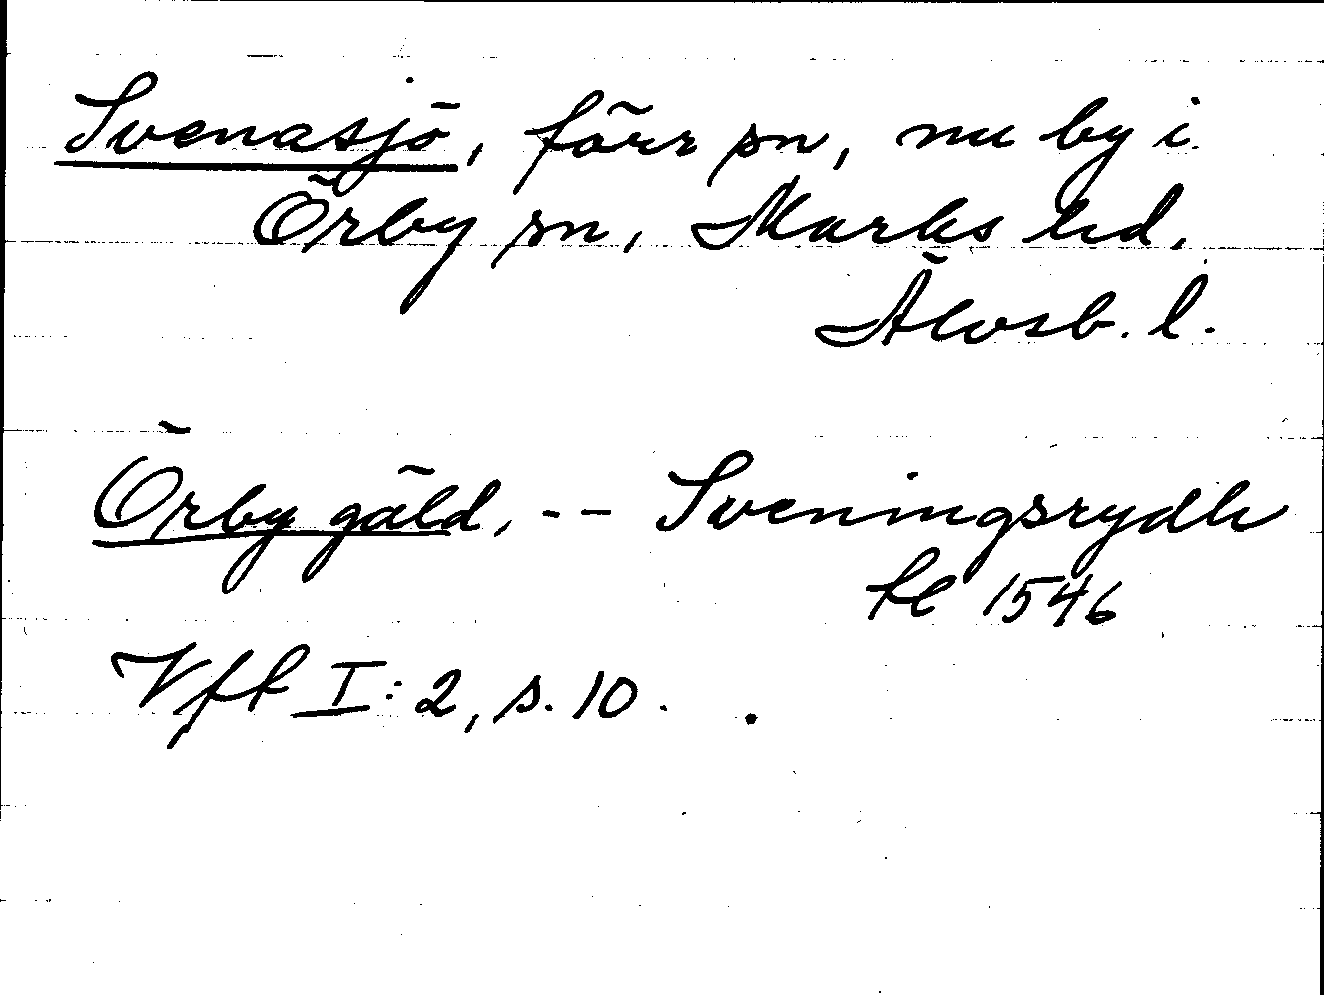 Svenasjö, förr sn, nu by i
Örby sn, Marks hd,
Älvsb. l.
Örby gäld, -- Sveningsrydh
fl 1546
Vft I: 2, s. 10.